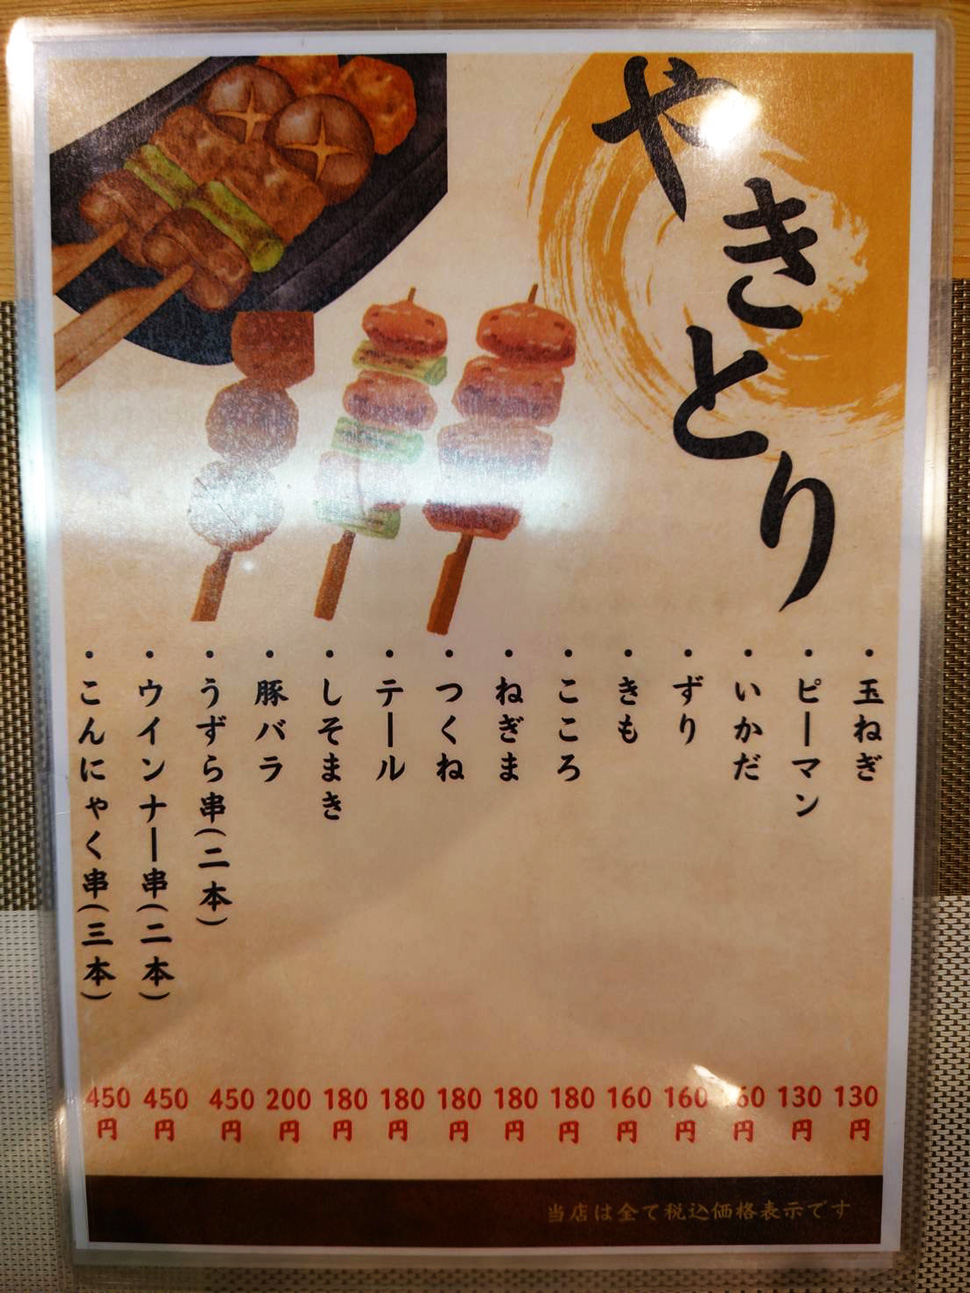 やきとり
・玉ねぎ
・ピーマン
・いかだ
・ずり
・きも
・こころ
・ねぎま
・つくね
・テール
・しそまき
・豚バラ
・うずら串(二本)
・ウインナー串(二本)
・こんにゃく串(三本)
130円
130円
60円
160円
160円
180円
180円
180円
180円
180円
200円
450円
450円
450円
当店は全て税込価格表示です